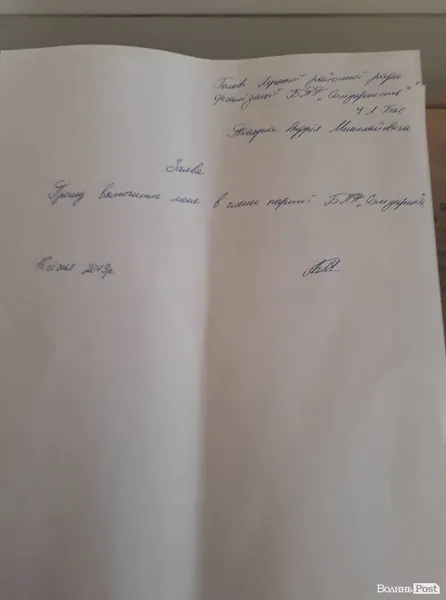 Голові Луцької районної ради
організації БПП "Солідарність"
Ч І Бас
Андрія Миколайовича
Заява
Прошу включити мене в члени партії БПП "Солідарність"
січня 2019р.
ВолиньPost